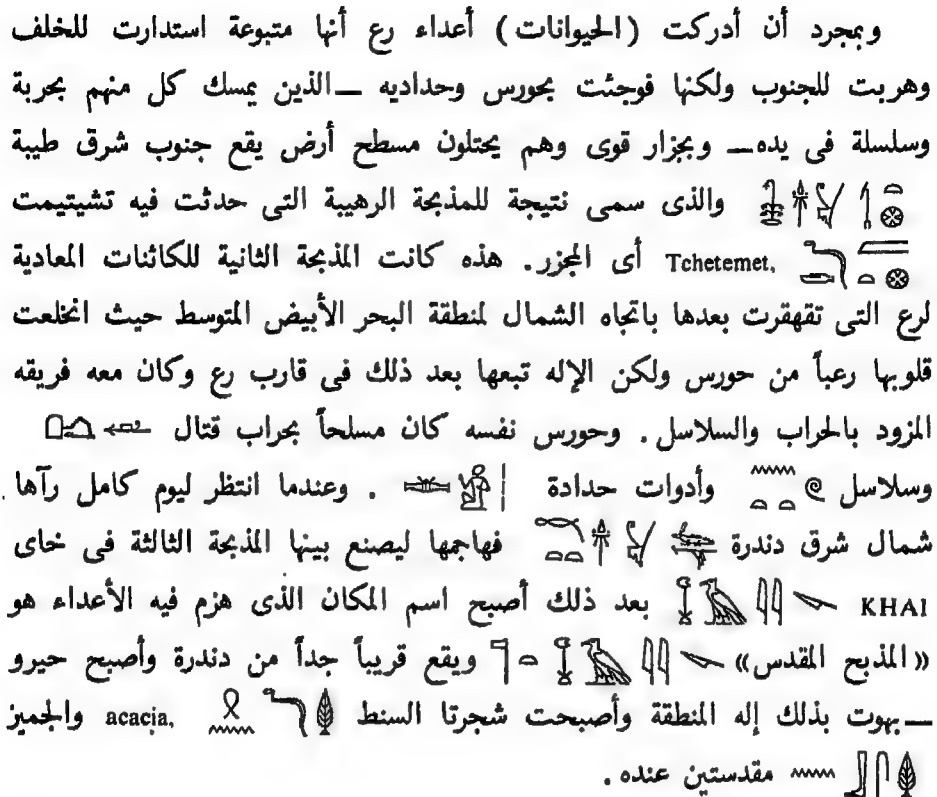 وبمجرد أن أدركت (الحيوانات) أعداء رع أنها متبوعة استدارت للخلف
وهربت للجنوب ولكنها فوجئت بحورس وحداديه —الذين يمسك كل منهم بحربة
وسلسلة فى يده— وبجزار قوى وهم يحتلون مسطح أرض يقع جنوب شرق طيبة
والذى سمى نتيجة للمذبحة الرهيبة التى حدثت فيه تشيتيمت
Tchetemet, أى المجزر. هذه كانت المذبحة الثانية للكائنات المعادية
لرع التى تقهقرت بعدها باتجاه الشمال لمنطقة البحر الأبيض المتوسط حيث انخلعت
قلوبها رعباً من حورس ولكن الإله تبعها بعد ذلك فى قارب رع وكان معه فريقه
المزود بالحراب والسلاسل. وحورس نفسه كان مسلحاً بحراب قتال
وسلاسل وأدوات حدادة . وعندما انتظر ليوم كامل رآها
شمال شرق دندرة فهاجمها ليصنع بينها المذبحة الثالثة فى خاى
KHAI بعد ذلك أصبح اسم المكان الذى هزم فيه الأعداء هو
«المذبح المقدس» ويقع قريباً جداً من دندرة وأصبح حيرو
—بهوت بذلك إله المنطقة وأصبحت شجرتا السنط acacia, والجميز
مقدستين عنده .